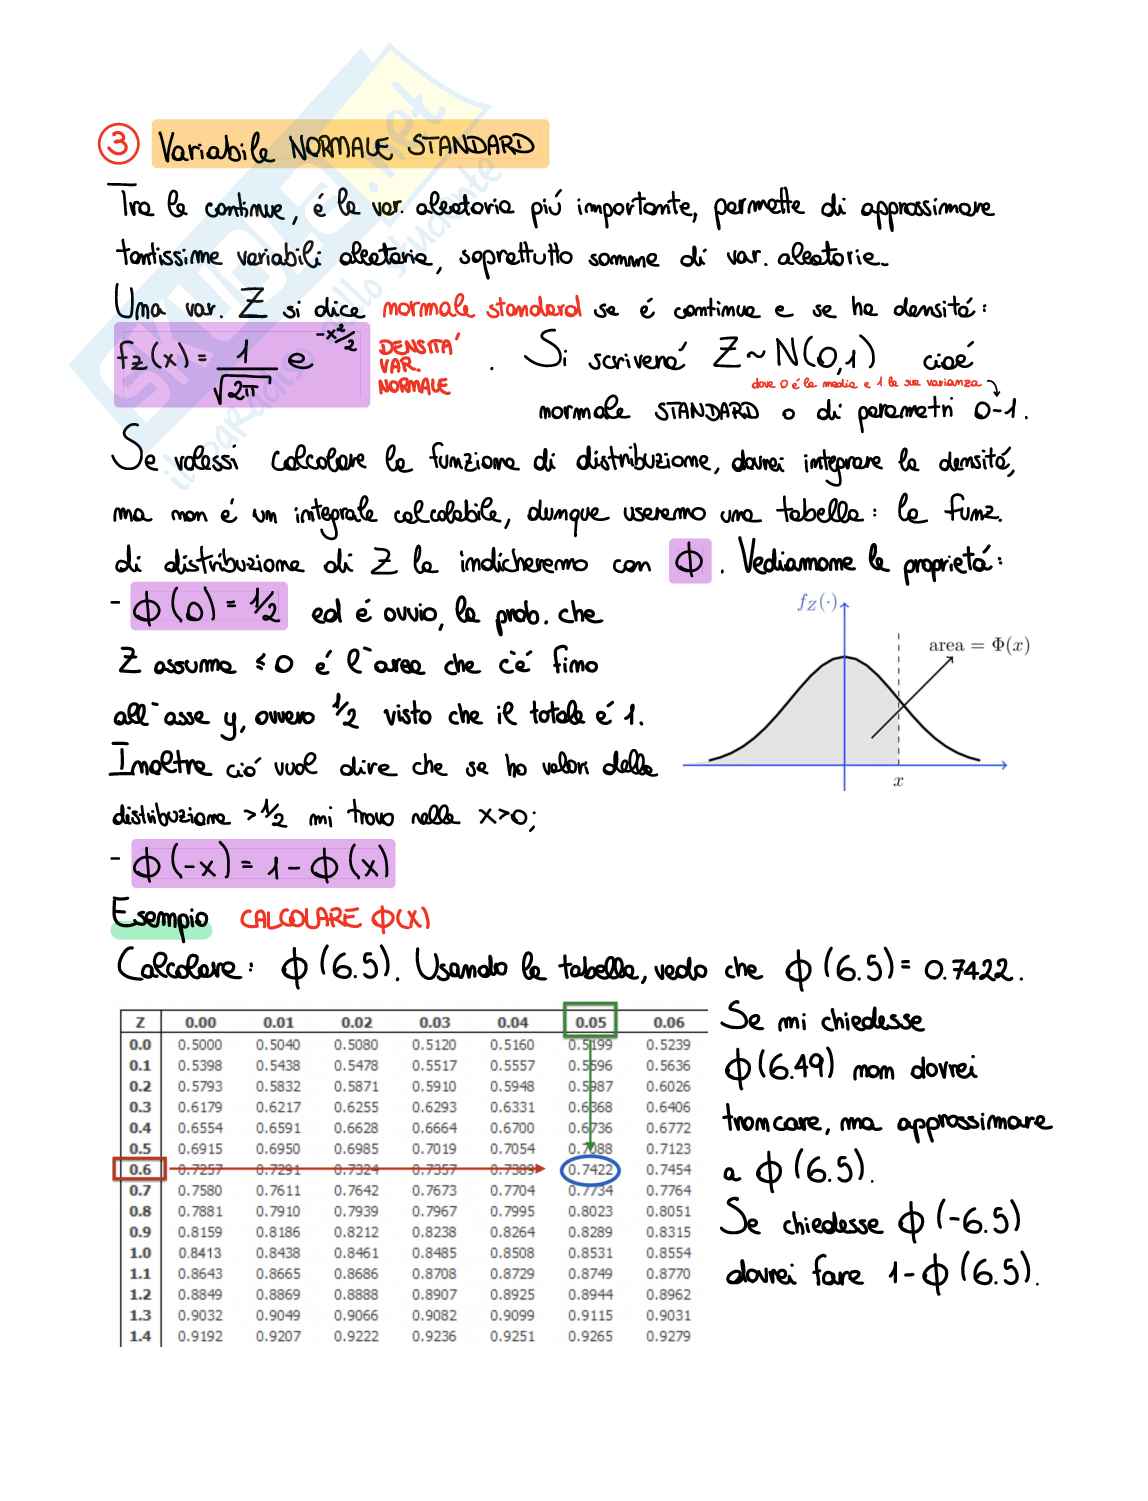 ③ Variabile NORMALE STANDARD
Tra le continue, é la var. aleatoria piú importante, permette di approssimare
tantissime variabili aleatorie, soprattutto somme di var. aleatorie.
Una var. Z si dice normale standard se é continua e se ha densitá:
fz(x) = 1/√2π e^-x²/2 DENSITA' VAR. NORMALE . Si scriverá Z ~ N(0,1) cioé
dove 0 é la media e 1 la sua varianza
normale STANDARD o di parametri 0-1.
Se volessi calcolare la funzione di distribuzione, dovrei integrare la densitá,
ma non é un integrale calcolabile, dunque useremo una tabella: la funz.
di distribuzione di Z la indicheremo con ϕ. Vediamone le proprietá:
- ϕ(0) = 1/2 ed é ovvio, la prob. che
Z assuma ≤ 0 é l'area che c'é fino
all'asse y, ovvero 1/2 visto che il totale é 1.
Inoltre ció vuol dire che se ho valori della
distribuzione > 1/2 mi trovo nella x>0;
fZ(·)
area = Φ(x)
x
- ϕ(-x) = 1 - ϕ(x)
Esempio CALCOLARE ϕ(X)
Calcolare: ϕ(6.5). Usando la tabella, vedo che ϕ(6.5) = 0.7422.
Z 0.00 0.01 0.02 0.03 0.04 0.05 0.06
0.0 0.5000 0.5040 0.5080 0.5120 0.5160 0.5199 0.5239
0.1 0.5398 0.5438 0.5478 0.5517 0.5557 0.5596 0.5636
0.2 0.5793 0.5832 0.5871 0.5910 0.5948 0.5987 0.6026
0.3 0.6179 0.6217 0.6255 0.6293 0.6331 0.6368 0.6406
0.4 0.6554 0.6591 0.6628 0.6664 0.6700 0.6736 0.6772
0.5 0.6915 0.6950 0.6985 0.7019 0.7054 0.7088 0.7123
0.6 0.7257 0.7291 0.7324 0.7357 0.7389 0.7422 0.7454
0.7 0.7580 0.7611 0.7642 0.7673 0.7704 0.7734 0.7764
0.8 0.7881 0.7910 0.7939 0.7967 0.7995 0.8023 0.8051
0.9 0.8159 0.8186 0.8212 0.8238 0.8264 0.8289 0.8315
1.0 0.8413 0.8438 0.8461 0.8485 0.8508 0.8531 0.8554
1.1 0.8643 0.8665 0.8686 0.8708 0.8729 0.8749 0.8770
1.2 0.8849 0.8869 0.8888 0.8907 0.8925 0.8944 0.8962
1.3 0.9032 0.9049 0.9066 0.9082 0.9099 0.9115 0.9031
1.4 0.9192 0.9207 0.9222 0.9236 0.9251 0.9265 0.9279
Se mi chiedesse
ϕ(6.49) non dovrei
troncare, ma approssimare
a ϕ(6.5).
Se chiedesse ϕ(-6.5)
dovrei fare 1-ϕ(6.5).
SKUOLA.net
il paradiso dello studente